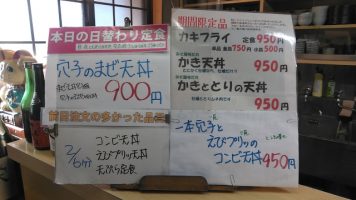 本日の日替わり定食
穴子のまぜ天丼
900円
前日注文の多かった品目
2/6
コンビ天丼
えびプリッ天丼
天ぷら定食
期間限定品
カキフライ 定食 950円
単品 750円 小 500円
かき天丼
950円
かきととりの天丼
950円
一本穴子と
えびプリッの
コンビ天丼 950円